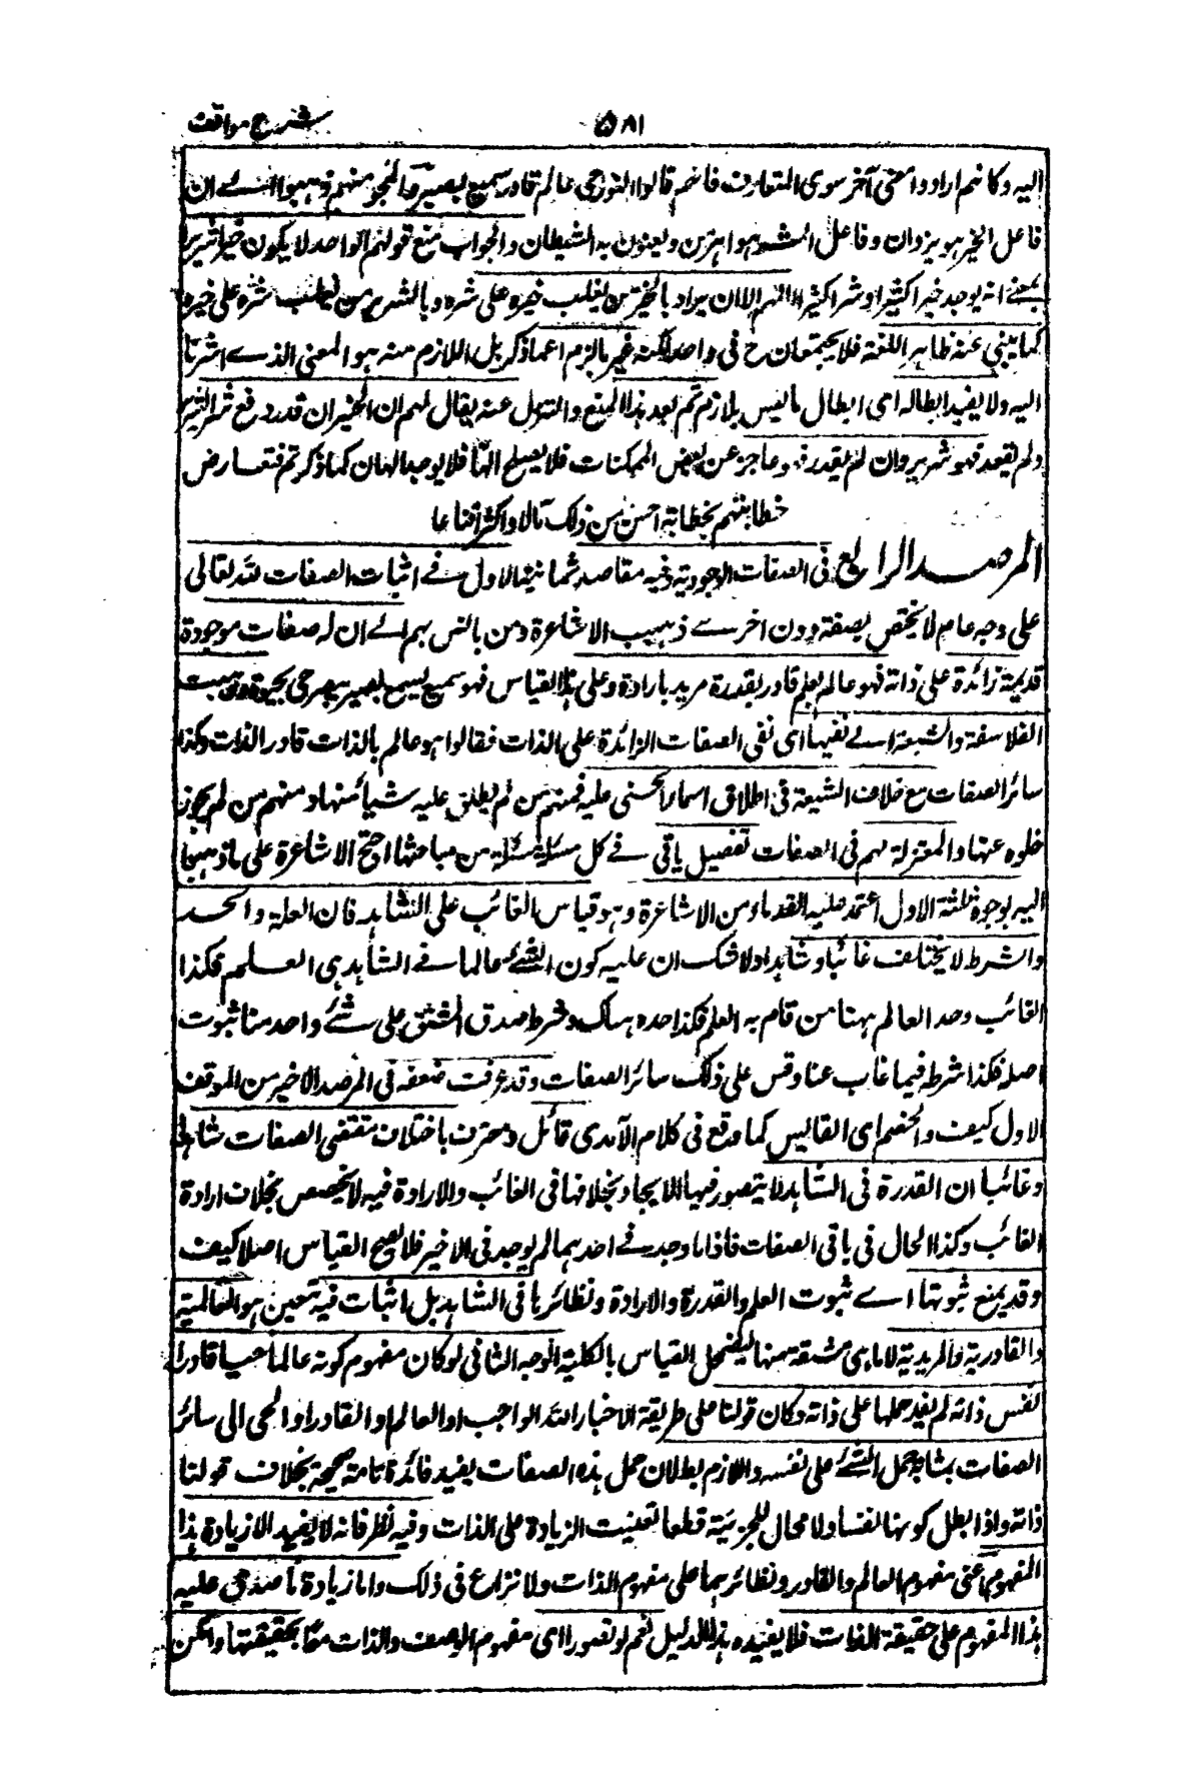 شرح مواقف
٥٨١
اليه وكانهم ارادوا معنى آخر سوى المتعارف فانهم قالوا النور حى عالم قادر سميع بصير والمجوس منهم ذهبوا الے ان
فاعل الخير هو يزدان وفاعل الشر هو اهرمن ويعنون به الشيطان والجواب منع قولهم الواحد لا يكون خيرا شريرا
بمعنے انه يوجد خيرا كثيرا وشرا كثيرا اللهم الا ان يراد بالخير من يغلب خيره على شره وبالشرير من يغلب شره على خيره
كما ينبئ عنه ظاهر اللغة فلا يجتمعان ح فى واحد لكنه غير ما لزم مما ذكر بل اللازم منه هو المعنى الذے اشرنا
اليه ولا يفيد ابطاله اى ابطال ما ليس بلازم ثم بعد هذا المنع والتنزل عنه يقال لهم ان الخير ان قدر دفع شر الشرير
ولم يفعله فهو شرير وان لم يقدر فهو عاجز عن بعض الممكنات فلا يصلح الٰها فلا يوجد الهان كما ذكرتم فتعارض
خطابتهم بخطابة احسن من ذلك مآلا واكثر اقناعا
المرصد الرابع فى الصفات الوجودية وفيه مقاصد ثمانية الاول فے اثبات الصفات لله تعالى
على وجه عام لا يختص بصفة دون اخرے ذهب الاشاعرة ومن تاسى بهم الے ان له صفات موجودة
قديمة زائدة على ذاته فهو عالم بعلم قادر بقدرة مريد بارادة وعلى هذا القياس فهو سميع بسمع بصير ببصر حى بحيوة وذهبت
الفلاسفة والشيعة الے نفيها اى نفى الصفات الزائدة على الذات فقالوا هو عالم بالذات قادر بالذات وكذا
سائر الصفات مع خلاف الشيعة فى اطلاق اسماء الحسنى عليه فمنهم من لم يطلق عليه شيئا منها ومنهم من لم يجوز
خلوه عنها والمعتزلة لهم فى الصفات تفصيل ياتى فے كل مسئلة مسئلة من مباحثها احتج الاشاعرة على ما ذهبوا
اليه بوجوه ثلثة الاول اعتمد عليه القدماء من الاشاعرة وهو قياس الغائب على الشاهد فان العلة والحد
والشرط لا يختلف غائبا وشاهدا ولا شك ان علة كون الشئے عالما فے الشاهد هى العلم فكذا
الغائب وحد العالم ههنا من قام به العلم فكذا حده هناك وشرط صدق المشتق على شئے واحد منا ثبوت
اصله فكذا شرطه فيما غاب عنا وقس على ذلك سائر الصفات وقد عرفت ضعفه فى المرصد الاخير من الموقف
الاول كيف والخصم اى القائس كما وقع فى كلام الآمدى قائل ومعترف باختلاف مقتضى الصفات شاهدا
وغائبا ان القدرة فى الشاهد لا يتصور فيها الايجاد بخلافها فى الغائب والارادة فيه لا تخصص بخلاف ارادة
الغائب وكذا الحال فى باقى الصفات فاذا ما وجد فے احدهما لم يوجد فى الاخير فلا يصح القياس اصلا كيف
وقد يمنع ثبوتها اے ثبوت العلم والقدرة والارادة ونظائرها فى الشاهد بل الثابت فيه بيقين هو العالمية
والقادرية والمريدية لا ما هى مشتقة منها فيضمحل القياس بالكلية الوجه الثانى لو كان مفهوم كونه عالما حيا قادرا
نفس ذاته لم يفد حملها على ذاته وكان قولنا على طريقة الاخبار الله الواجب او العالم او القادر او الحى الى سائر
الصفات بمثابة حمل الشئے على نفسه واللازم بطلان حمل هذه الصفات يفيد فائدة تامة صحيحة بخلاف قولنا
ذاته واذا بطل كونها نفسا ولا مجال للجزئية قطعا تعينت الزيادة على الذات وفيه نظر فانه لا يفيد الا زيادة هذا
المفهوم اعنى مفهوم العالم والقادر ونظائرهما على مفهوم الذات ولا نزاع فى ذلك واما زيادة ما صدق عليه
هذا المفهوم على حقيقة الذات فلا يفيده هذا الدليل نعم لو تصورا اى مفهوم الوصف والذات معا بحقيقتهما وامكن